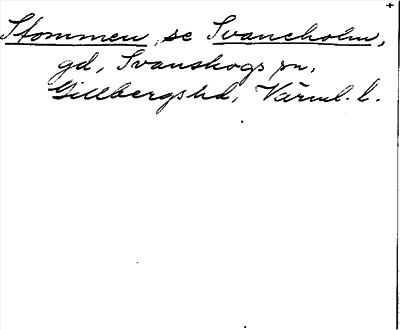 Stommen, se Svaneholm,
gd, Svanskogs sn,
Gillbergs hd, Värml. l.